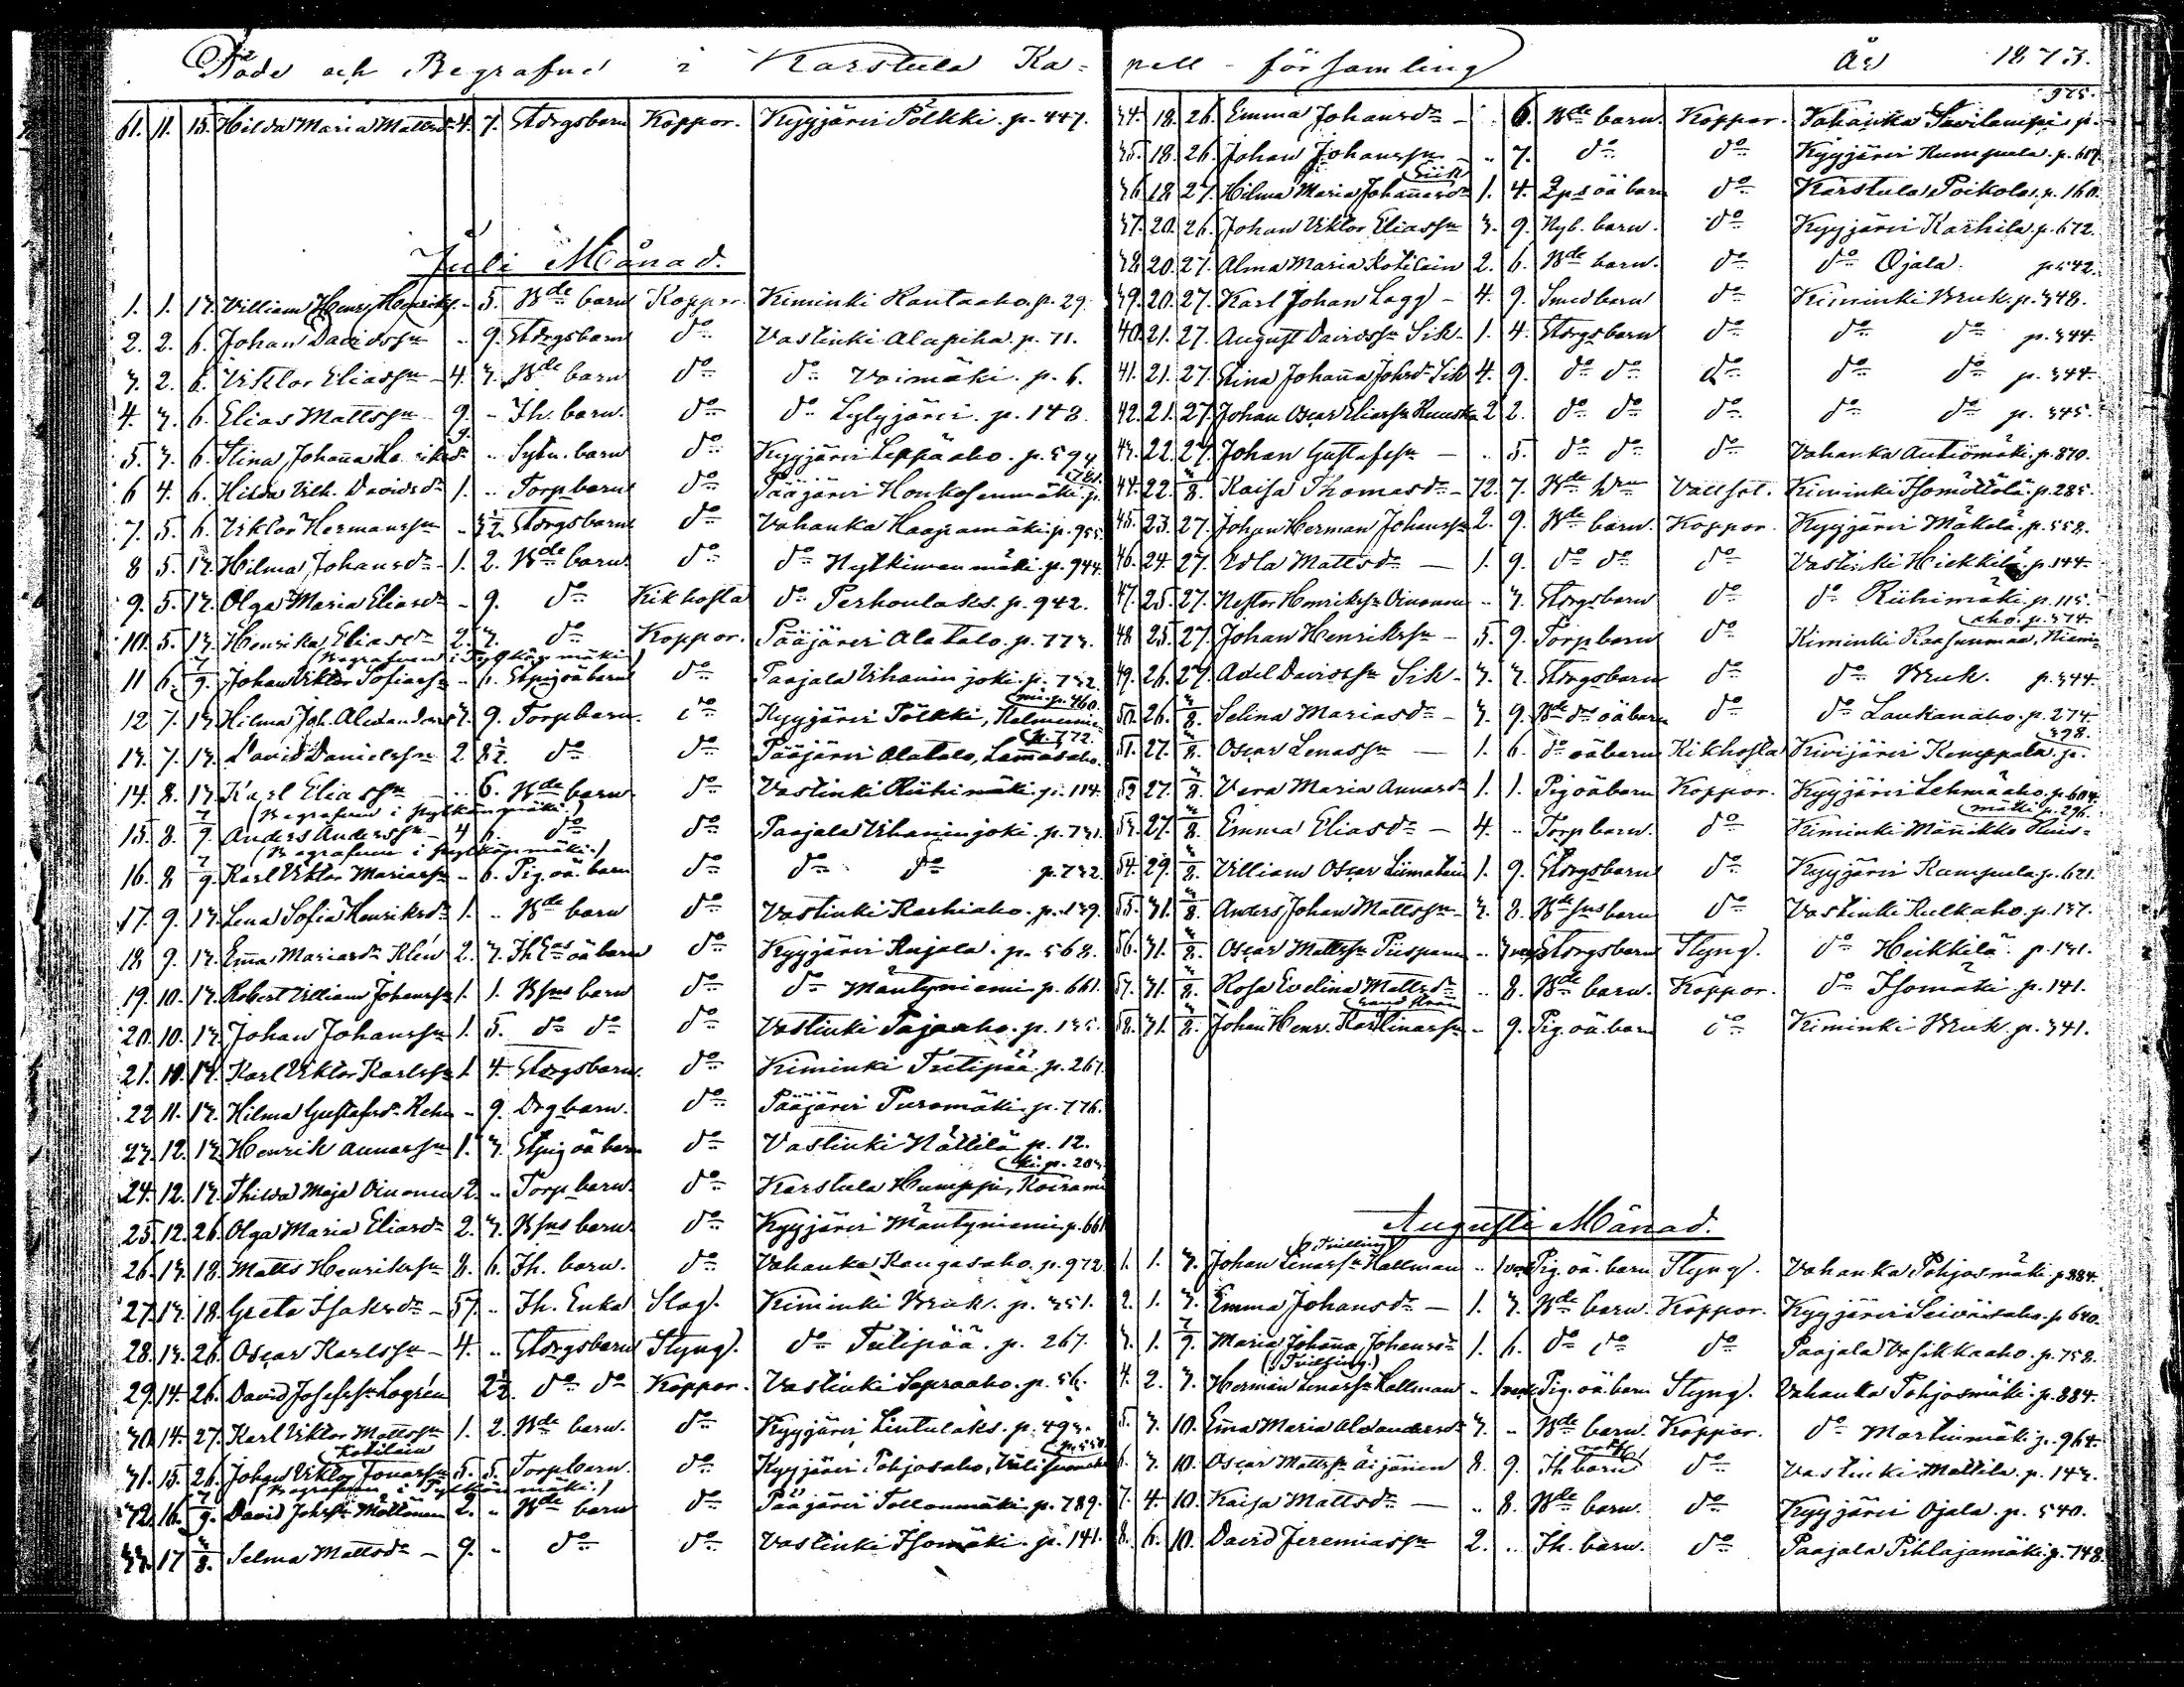 Döde och Begrafne i Karstula Ka-
61. 11. 15. Hilda Maria Mattsdr 4. 7. Storgsbarn Koppor. Kyyjärvi Pölkki. p. 447.
Juli Månad.
1. 1. 13. William Henr. Henriks - 5. Bde barn Koppor. Kiminki Rautaaho. p. 29.
2. 2. 6. Johan Davidssn .. 9. Storgsbarn do Vastinki Alapiha. p. 71.
3. 2. 6. Viktor Eliassn - 4. 3. Bde barn do do Voimäki. p. 6.
4. 3. 6. Elias Mattssn 9. - Ih. barn. do do Lylyjärvi. p. 148.
5. 3. 6. Stina Johanna 9. .. Sytn. barn do Kyyjärvi Leppäaho. p. 594
6 4. 6. Hilda Vilh. Davidsdr 1. .. Torpbarn do Pääjärvi Honkosenmäki. p. 781.
7. 5. 6. Viktor Hermanssn - 3½. Storgsbarn do Vahanka Haapamäki. p. 955.
8 5. 13. Hilma Johansdr - 1. 2. Bde barn do do Nytkimenmäki. p. 944.
9. 5. 13. Olga Maria Eliasdr - 9. do Kikhosta do Perhoulaks. p. 942.
10. 5. 13. Henrika Eliasdr 2. 3. do Koppor. Pääjärvi Alatalo. p. 773.
(Begrafven i Pylkönmäki)
11 6. 7/9. Johan Viktor Sofiass .. 6. Stpigoäbarn do Paajala Vihanin joki. p. 732.
12 7. 13. Hilma Joh. Alexanders 3. 9. Torpbarn. do Kyyjärvi Pölkki, Kalmunie- mi. p. 460.
13. 7. 13. David Danielssn 2 8½. do do Pääjärvi Alatalo, Lamasaho. p. 772.
14. 8. 13. Karl Eliassn - .. 6. Bde barn do Vastinki Riihimäki. p. 114.
(Begrafven i Pylkönmäki.)
15. 8. 7/9. Anders Anderssn - 4 6. do do Paajala Vihanin joki. p. 731.
(Begrafven i Pylkönmäki.)
16. 8 7/9. Karl Viktor Mariassn .. 6. Pig. oä. barn do do do p. 732.
17. 9. 13. Lena Sofia Henriksdr 1. .. Bde barn do Vastinki Karhiaho. p. 139.
18 9. 13. Emma Mariasdr Klén 2. 3. Ih Eas oä barn do Kyyjärvi Kujala. p. 568.
19. 10. 13. Robert William Johanssn 1. 1. Bsns barn do do Mäntyniemi p. 661.
20. 10. 13. Johan Johanssn 1. 5. do do do Vastinki Pajaaho. p. 135.
21. 10. 14. Karl Viktor Karlssn 1. 4. Storgsbarn. do Kiminki Tulipää. p. 267.
22 11. 13. Hilma Gustafsdr - 9. Drgbarn. do Pääjärvi Puromäki. p. 776.
23. 12. 13. Henrik Annassn 1. 3. Stpig oä barn do Vastinki Nättilä p. 12.
24. 12. 13. Thilda Maja Oinonen 2. .. Torpbarn. do Karstula Humppi, Koiramä ki. p. 203.
25. 12. 26. Olga Maria Eliasdr 2. 3. Bsns barn. do Kyyjärvi Mäntyniemi p. 661
26. 13. 18. Matts Henrikssn 8. 6. Ih. barn. do Vahanka Kangasaho. p. 972.
27. 13. 18. Greta Isaksdr - 57. .. Ih. Enka Slag. Kiminki Bruk. p. 351.
28. 13. 26. Oscar Karlssn - 4. .. Storgsbarn Styng. do Tulipää. p. 267.
29. 14. 26. David Josefssn Logrén 2½. do do Koppor. Vastinki Sopraaho. p. 56.
30. 14. 27. Karl Viktor Mattssn 1. 2. Bde barn. do Kyyjärvi Lintulaks. p. 493.
31. 15. 26. Johan Viktor Jonassn Kotilain 5. 5. Torpbarn. do Kyyjärvi Pohjosaho, p. 550.
(Begrafven i Pylkönmäki.)
32. 16. 7/9. David Johssn Möttönen 2. .. Bde barn do Pääjärvi Tollonmäki. p. 789.
33. 17 3/8. Selma Mattsdr - 9. - do do Vastinki Isomäki. p. 141.
pell-församling År 1873.
34. 18. 26. Emma Johansdr - .. 6. Bde barn. Koppor. Vahanka Savilampi. p. 925.
35. 18. 26. Johan Johanssn - .. 7. do do Kyyjärvi Rumpula. p. 607.
36 18 27. Hilma Maria Johansdr Siik 1. 4. Inps oä barn do Karstula Poikola. p. 160.
37. 20. 26. Johan Viktor Eliassn 3. 9. Nyb. barn. do Kyyjärvi Karhila. p. 672.
38. 20. 27. Alma Maria Kotilain 2. 6. Bde barn. do do Ojala. p. 542.
39. 20. 27. Karl Johan Lagg - 4. 9. Smed barn do Kiminki Bruk. p. 348.
40. 21. 27. August Davidssn Siik - 1. 4. Storgsbarn do do do p. 344.
41. 21. 27. Stina Johanna Johsdr Siik 4. 9. do do do do do p. 344.
42. 21. 27. Johan Oscar Eliassn Ruuska 2 2. do do do do do p. 345.
43. 22. 27. Johan Gustafssn - .. 5. do do do Vahanka Autiomäki. p. 870.
44. 22. 3/8. Kaisa Thomasdr - 72. 7. Bde Vattsot. Kiminki Isomöttölä. p. 285.
45. 23. 27. Johan Herman Johanssn 2. 9. Bde barn. Koppor. Kyyjärvi Mäkelä. p. 558.
46. 24. 27. Edla Mattsdr - 1. 9. do do do Vastinki Hiekkilä. p. 144.
47. 25. 27. Nestor Henrikssn Oinonen .. 3. Storgsbarn do do Riihimäki. p. 115.
48 25. 27. Johan Henrikssn - 5. 9. Torpbarn do Kiminki Raasunmaa, Niemi- aho. p. 374.
49. 26. 27. Axel Davidssn Siik - 3. 3. Storgsbarn do do Bruk. p. 344.
50. 26. 3/8. Selina Mariasdr - 3. 9. oä barn do do Laukanaho. p. 274.
51. 27. 3/8. Oscar Lenassn - 1. 6. do oä barn Kikhosta Kivijärvi Kumppala. p. 398.
52 27. 3/8. Vera Maria Annasdr 1. 1. Pigoäbarn Koppor. Kyyjärvi Lehmäaho. p. 604.
53. 27. 3/8. Emma Eliasdr - 4. .. Torpbarn. do Kiminki Männikkö p. 296.
54. 29. 3/8. William Oscar Liimatain 1. 9. Storgsbarn do Kyyjärvi Rumpula. p. 621.
55. 31. 3/8. Anders Johan Mattssn 3. 8. Bde sns barn do Vastinki Kulkaho. p. 137.
56. 31. 3/8. Oscar Mattssn Piispanen .. Storgsbarn Styng. do Heikkilä p. 131.
57. 31. 3/8. Rosa Evelina Mattsdr .. 8. Bde barn. Koppor. do Isomäki p. 141.
58. 31. 3/8. Johan Henr. Karlinassn Sandström - 9. Pig. oä. barn do Kiminki Bruk. p. 341.
Augusti Månad.
1. 1. 3. Johan Lenassn Kallman (Tvilling) .. Pig. oä. barn Styng. Vahanka Pohjosmäki. p. 884.
2. 1. 3. Emma Johansdr - 1. 3. Bde barn. Koppor. Kyyjärvi p. 640.
3. 1. 7/9. Maria Johanna Johansdr 1. 6. do do do Paajala Vasikkaaho. p. 758.
4. 2. 3. Herman Lenassn Kallman (Tvilling.) - Pig. oä. barn Styng. Vahanka Pohjosmäki. p. 884.
5. 3. 10. Emma Maria Alexandersdr 3. .. Bde barn. Koppor. do Martinmäki p. 964.
6. 3. 10. Oscar Mattssn Äijänen 8. 9. Ih barn do Vastinki Mattila. p. 143.
7. 4. 10. Kaisa Mattsdr - .. 8. Bde barn. do Kyyjärvi Ojala. p. 540.
8. 6. 10. David Jeremiassn 2. .. Ih. barn. do Paajala Pihlajamäki. p. 748.